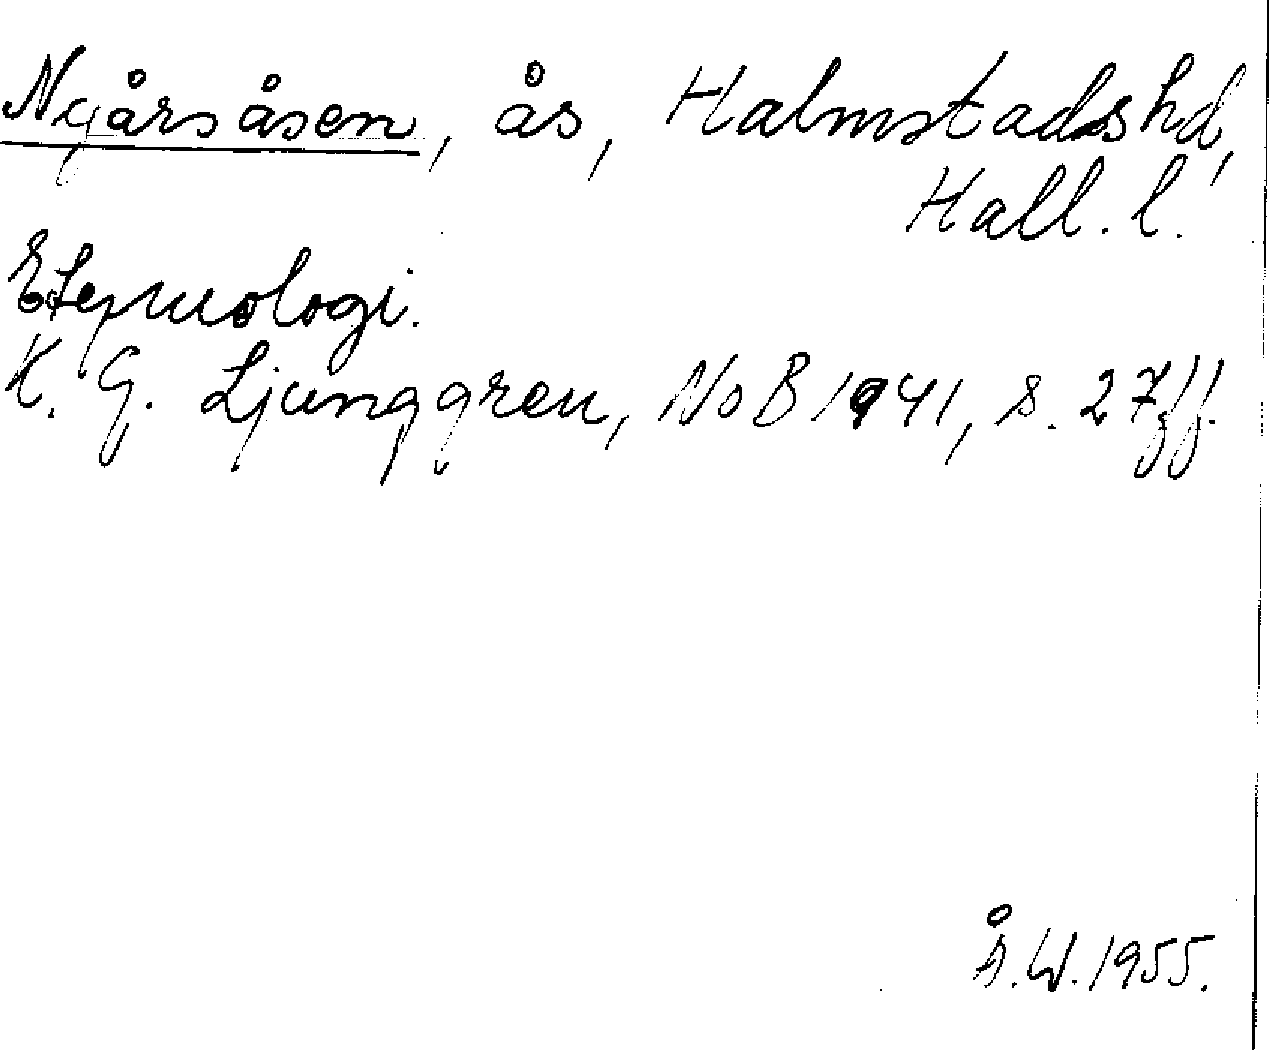 Nyårsåsen, ås, Halmstads hd,
Hall. l.
Etymologi.
K. G. Ljunggren, NoB 1941, s. 27ff.
Å.W. 1955.